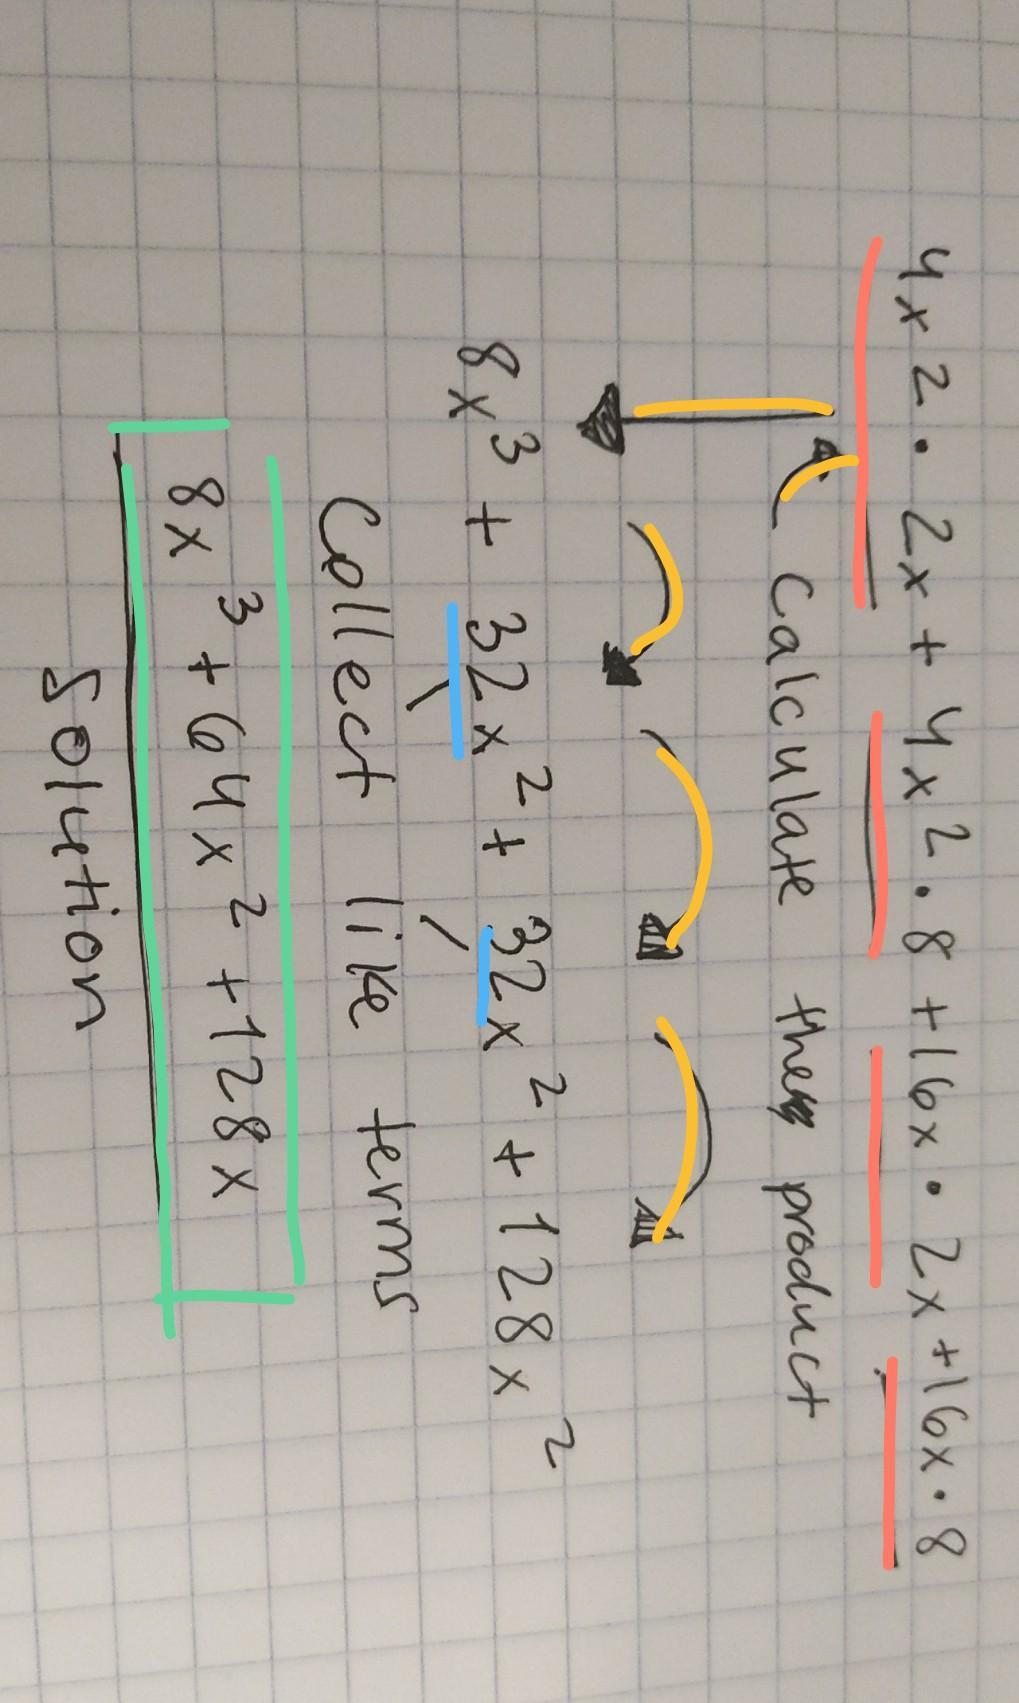 4x2 · 2x + 4x2 · 8 + 16x · 2x + 16x · 8
Calculate the product
8x³ + 32x² + 32x² + 128x²
Collect like terms
8x³ + 64x² + 128x
Solution